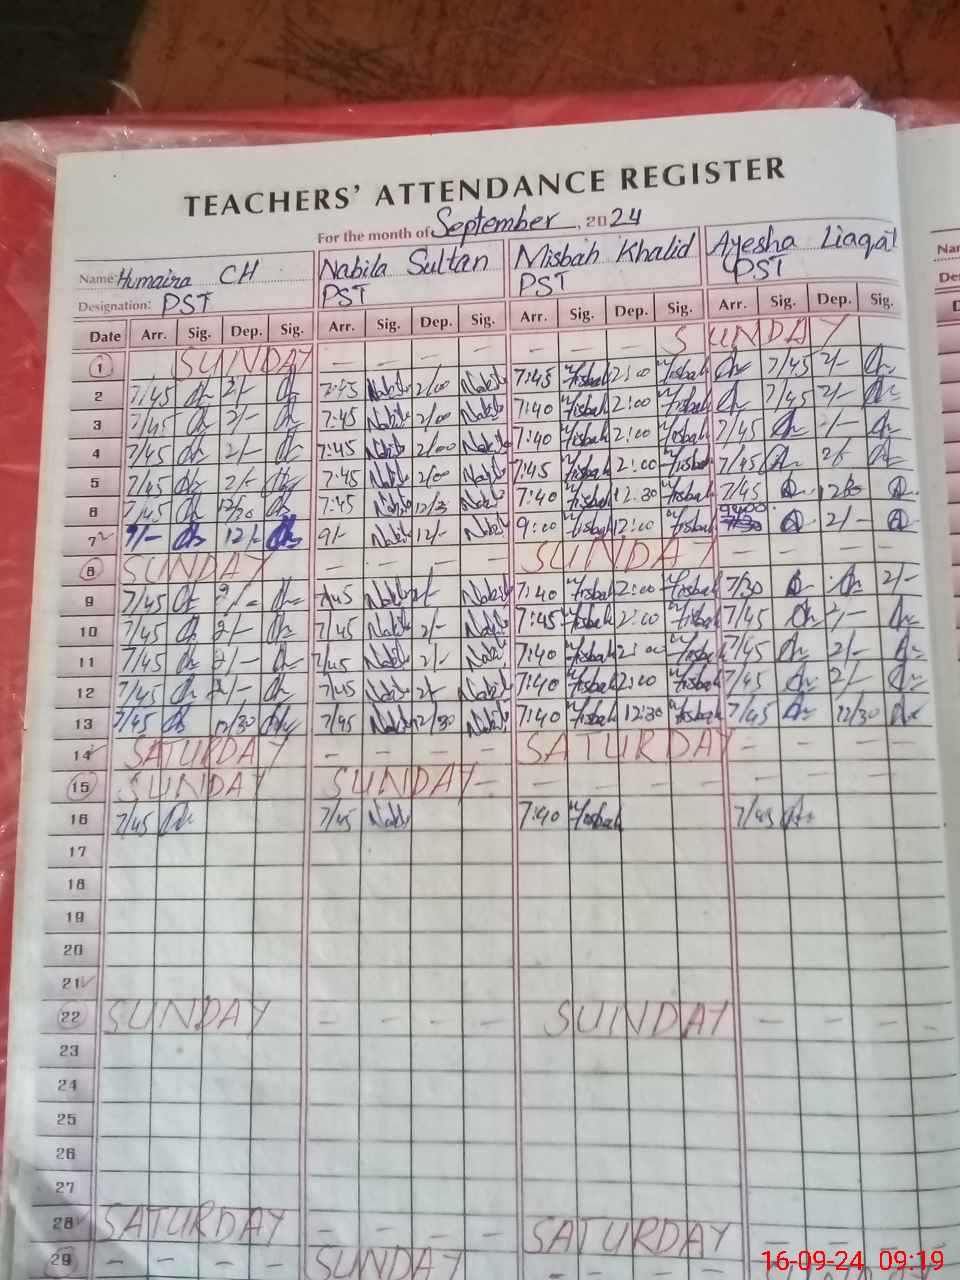 TEACHERS' ATTENDANCE REGISTER
For the month of September, 2024
Name: Humaira CH Nabila Sultan Misbah Khalid Ayesha Liaqat
Designation: PST PST PST PST
Date Arr. Sig. Dep. Sig. Arr. Sig. Dep. Sig. Arr. Sig. Dep. Sig. Arr. Sig. Dep. Sig.
1 SUNDAY — — — — — — — SUNDAY
2 7/45 2/- 7:45 Nabila 2/00 Nabila 7:45 Misbah 2:00 Misbah 7/45 2/-
3 7/45 2/- 7:45 Nabila 2/00 Nabila 7:40 Misbah 2:00 Misbah 7/45 2/-
4 7/45 2/- 7:45 Nabila 2/00 Nabila 7:40 Misbah 2:00 Misbah 7/45
5 7/45 2/- 7:45 Nabila 2/00 Nabila 7:45 Misbah 2:00 Misbah 7/45 2/-
6 7/45 12/30 7:45 Nabila 12/3 Nabila 7:40 Misbah 12.30 Misbah 7/45 1230
7 9/- 12/- 9/- Nabila 12/- Nabila 9:00 Misbah 12:00 Misbah 2/-
8 SUNDAY — — — — SUNDAY — — — —
9 7/45 7/45 Nabila Nabila 7:40 Misbah 2:00 Misbah 7/30 2/-
10 7/45 2/- 7/45 Nabila 2/- Nabila 7:45 Misbah 2:00 Misbah 7/45 2/-
11 7/45 2/- 7/45 Nabila 2/- Nabila 7:40 Misbah 2:00 Misbah 7/45 2/-
12 7/45 2/- 7/45 Nabila 2/- Nabila 7:40 Misbah 2:00 Misbah 7/45 2/-
13 7/45 12/30 7/45 Nabila 12/30 Nabila 7:40 Misbah 12:30 Misbah 7/45 12/30
14 SATURDAY — — — — SATURDAY — — — —
15 SUNDAY SUNDAY — — — — — — — —
16 7/45 7/45 Nabila 7:40 Misbah 7/45
17
18
19
20
21
22 SUNDAY — — — — SUNDAY — — — —
23
24
25
26
27
28 SATURDAY — — — — SATURDAY
29 — — — — SUNDAY
16-09-24 09:19